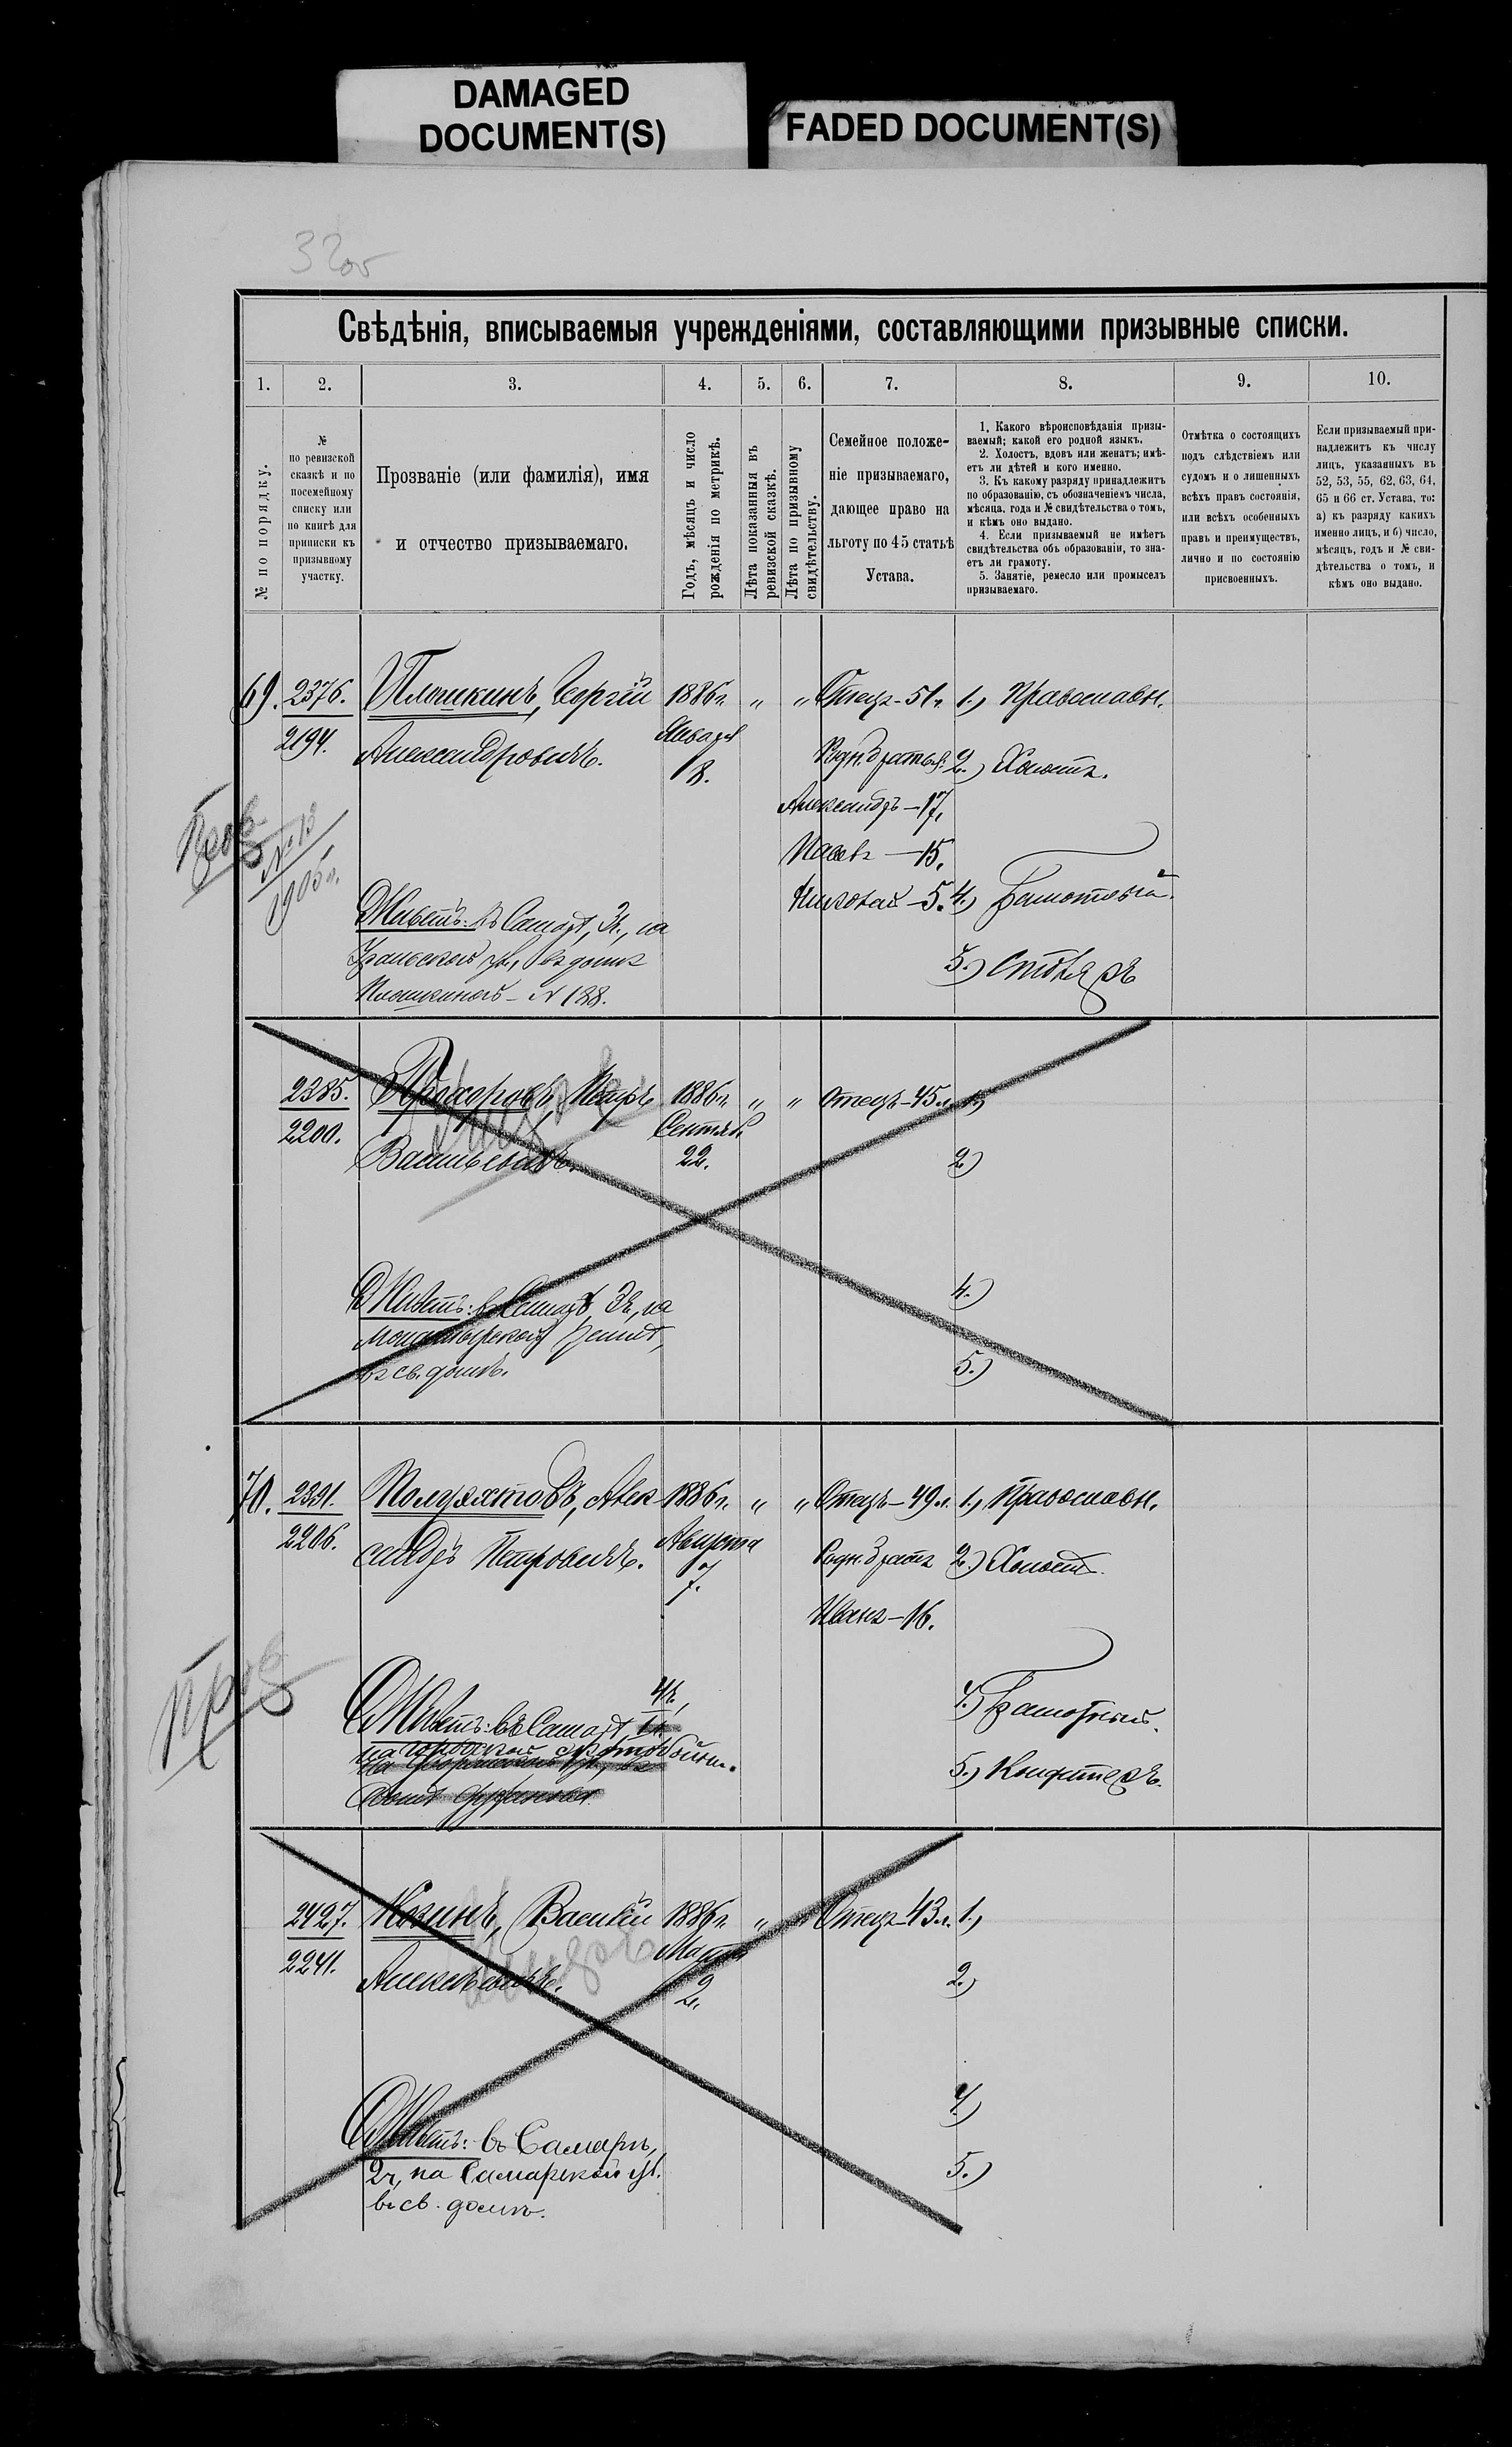 DAMAGED
DOCUMENT(S)
FADED DOCUMENT(S)
32об
Свѣдѣнія, вписываемыя учрежденіями, составляющими призывные списки.
1. 2. 3. 4. 5. 6. 7. 8. 9. 10.
№ по порядку.
№
по ревизской
сказкѣ и по
посемейному
списку или
по книгѣ для
приписки къ
призывному
участку.
Прозваніе (или фамилія), имя
и отчество призываемаго.
Годъ, мѣсяцъ и число
рожденія по метрикѣ.
Лѣта показанныя въ
ревизской сказкѣ.
Лѣта по призывному
свидѣтельству.
Семейное положе-
ніе призываемаго,
дающее право на
льготу по 45 статьѣ
Устава.
1. Какого вѣроисповѣданія призы-
ваемый; какой его родной языкъ.
2. Холостъ, вдовъ или женатъ; имѣ-
етъ ли дѣтей и кого именно.
3. Къ какому разряду принадлежитъ
по образованію, съ обозначеніемъ числа,
мѣсяца, года и № свидѣтельства о томъ,
и кѣмъ оно выдано.
4. Если призываемый не имѣетъ
свидѣтельства объ образованіи, то зна-
етъ ли грамоту.
5. Занятіе, ремесло или промыселъ
призываемаго.
Отмѣтка о состоящихъ
подъ слѣдствіемъ или
судомъ и о лишенныхъ
всѣхъ правъ состоянія,
или всѣхъ особенныхъ
правъ и преимуществъ,
лично и по состоянію
присвоенныхъ.
Если призываемый при-
надлежитъ къ числу
лицъ, указанныхъ въ
52, 53, 55, 62, 63, 64,
65 и 66 ст. Устава, то:
а) къ разряду какихъ
именно лицъ, и б) число,
мѣсяцъ, годъ и № сви-
дѣтельства о томъ, и
кѣмъ оно выдано.
69. 2376. Плошкинъ, Георгій 1886 г. " " Отецъ - 51 г. 1.) Православн.
2194. Александровичъ. Января 18. Родн. братья: 2.) Холостъ.
Александръ - 17,
Павелъ - 15,
Николай - 5. 4.) Грамотный.
Пров
№ 13
1905 г.
Живетъ: въ Самарѣ, 3 ч., на
Уральской ул., въ домѣ
Плошкиной - № 188.
5.) Столяръ
2385. Прохоровъ, Петръ 1886 г. " " Отецъ - 45 л. 1.)
2200. Васильевичъ. Сентяб. 22. 2.)
Живетъ: въ Самарѣ, 3 ч., на
4.)
въ св. домѣ.
5.)
70. 2391. Полуяхтовъ, Алек- 1886 г. " " Отецъ - 49 л. 1.) Православн.
2206. сандръ Петровичъ. Августа 7. Родн. братъ 2.) Холостъ.
Иванъ - 16.
Пров
4 ч.,
Живетъ: въ Самарѣ,
на городской скотобойни.
4.) Грамотный.
5.) Кондитеръ.
2427. Козинъ, Василій 1886 г. " " Отецъ - 43 л. 1.)
2241. Алексѣевичъ. Марта 2. 2.)
4.)
Живетъ: въ Самарѣ,
2 ч., на Самарской ул.
въ св. домѣ.
5.)